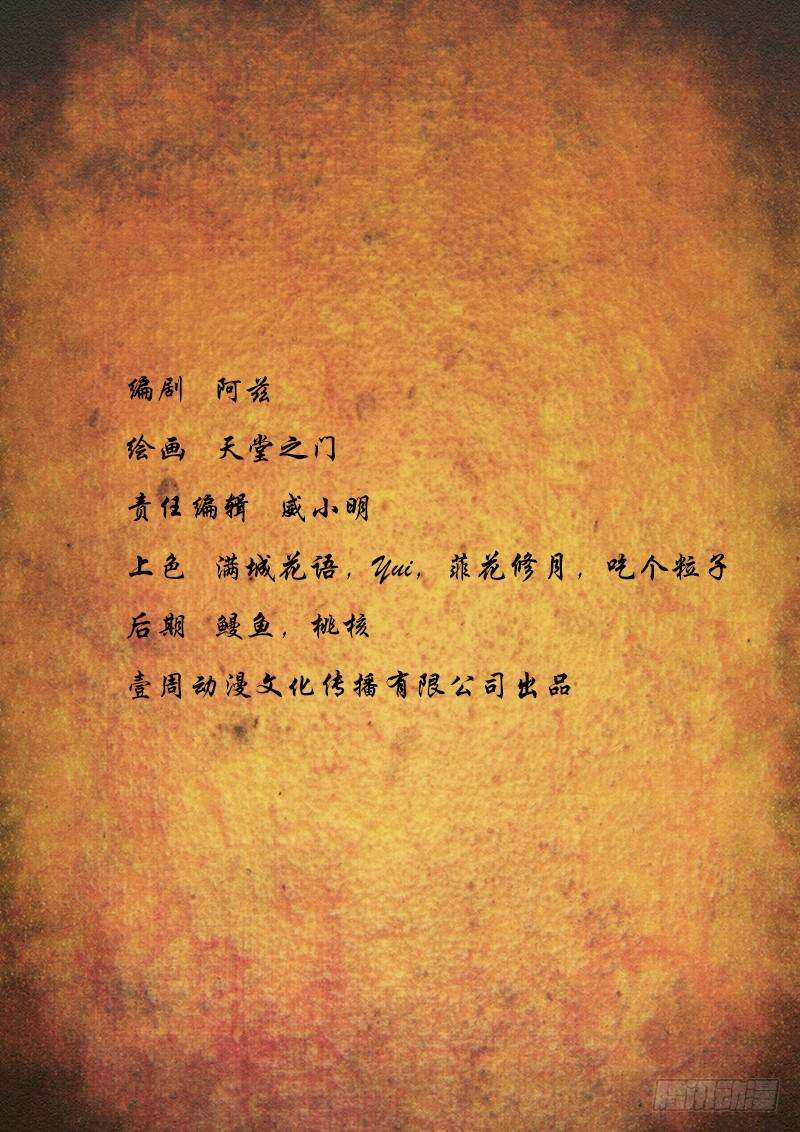 编剧 阿兹
绘画 天堂之门
责任编辑 威小明
上色 满城花语，Yui，菲花修月，吃个粒子
后期 鳗鱼，桃核
壹周动漫文化传播有限公司出品
腾讯动漫